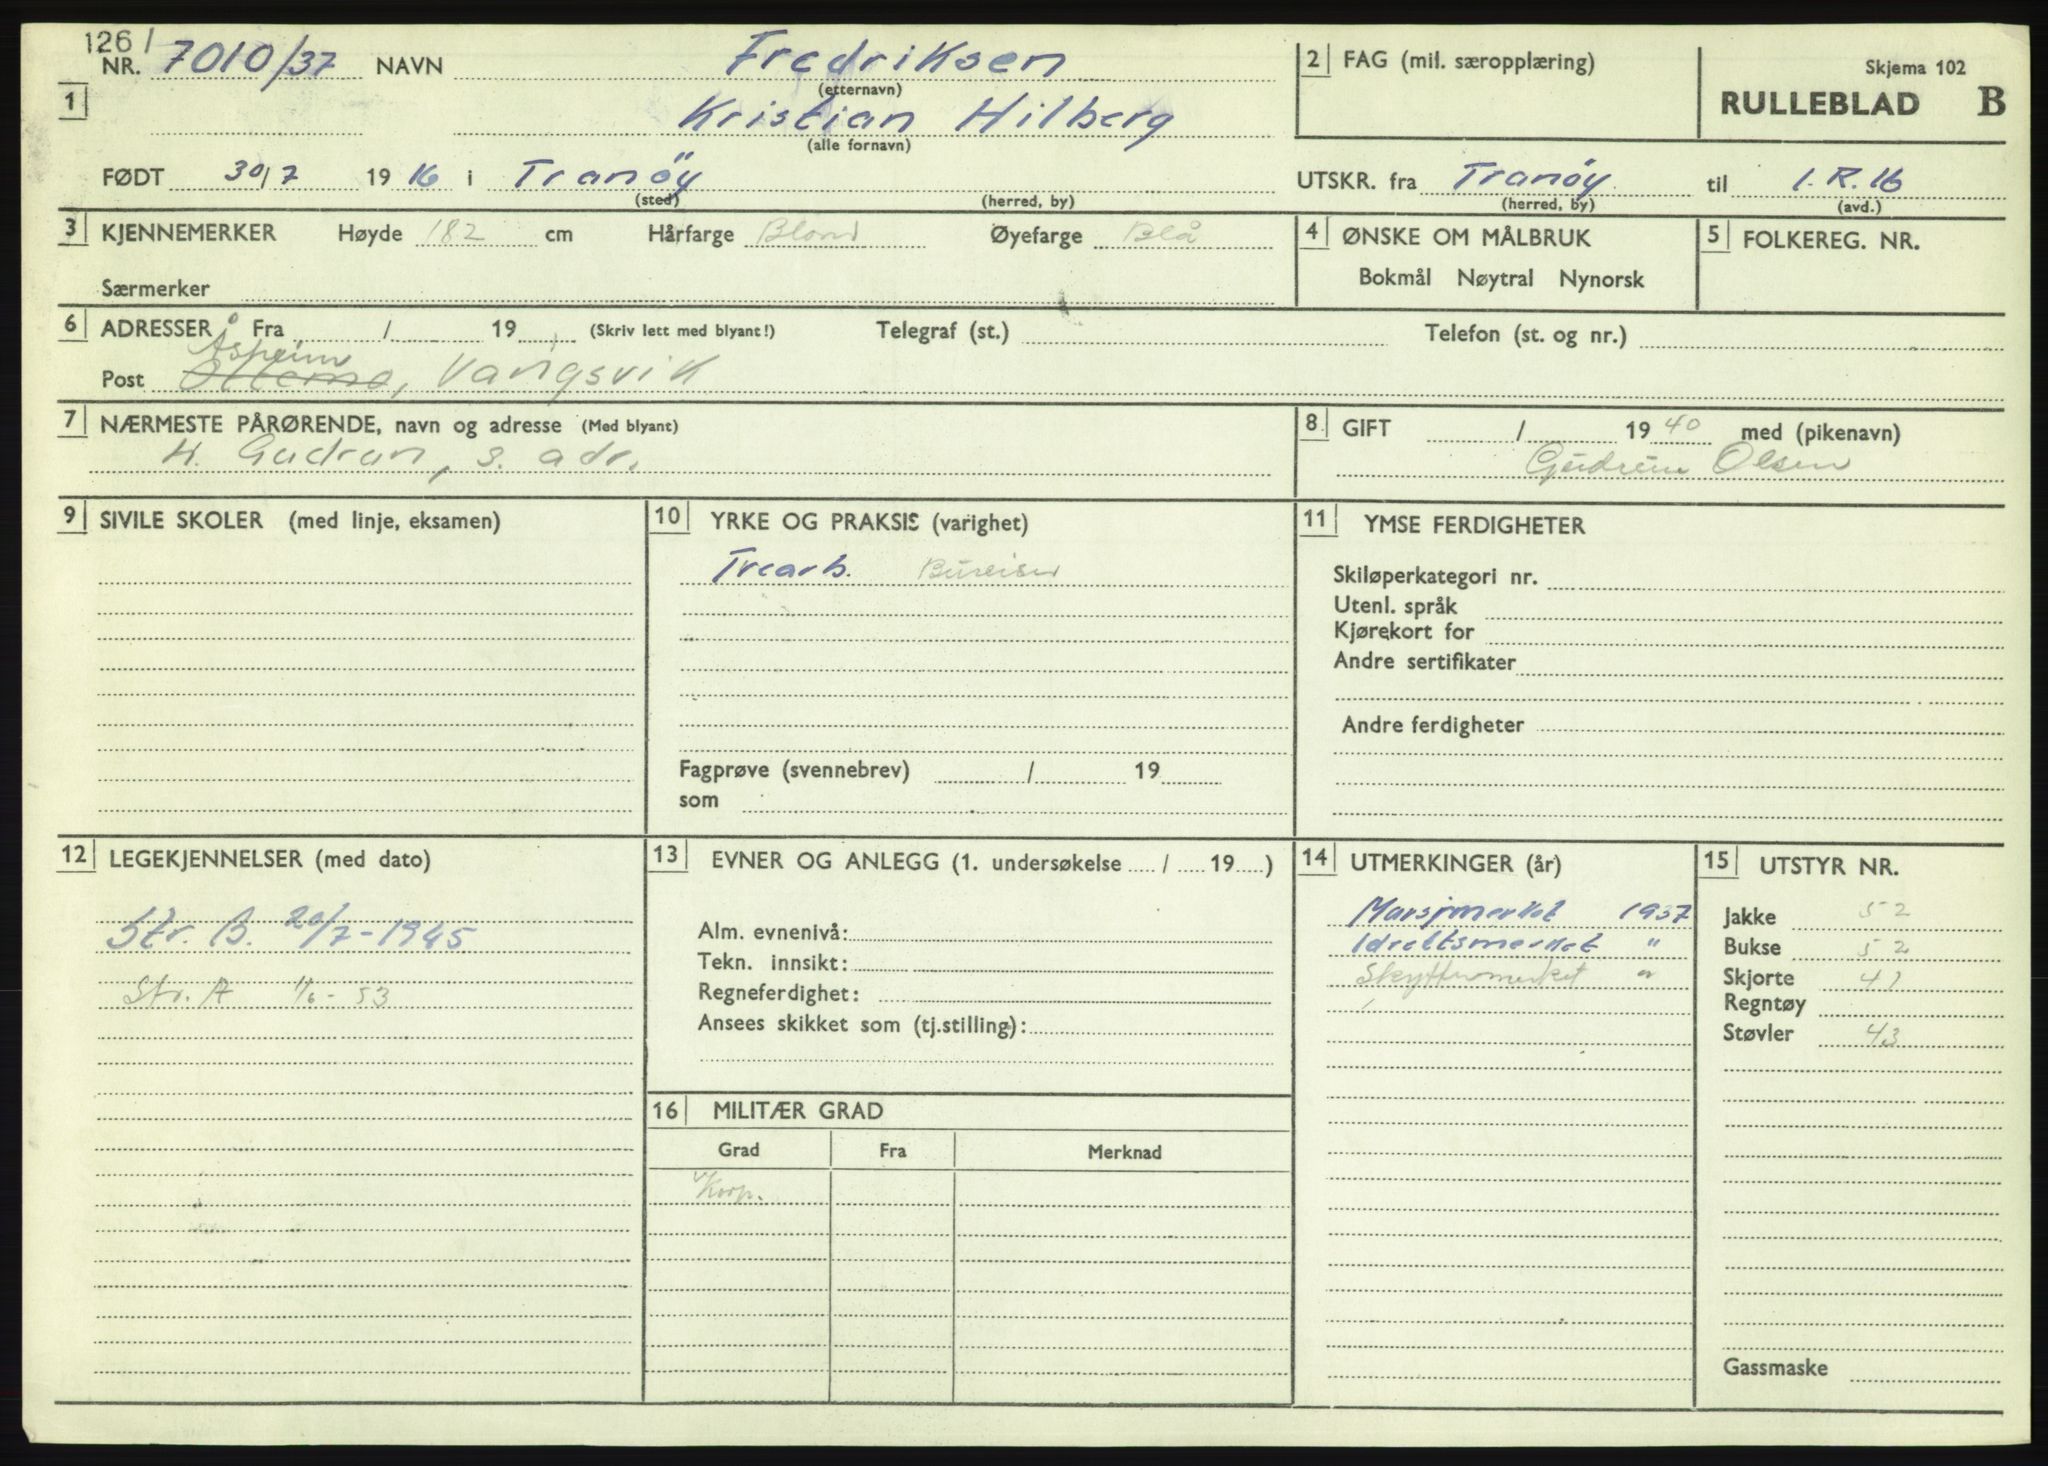 126/
NR. 7010/37 NAVN Fredriksen
(etternavn)
1
Kristian Hilberg
(alle fornavn)
FØDT 30/7 1916 i Tranöy
(sted) (herred, by)
2 FAG (mil. særopplæring)
Skjema 102
RULLEBLAD B
UTSKR. fra Tranöy til I.R.16
(herred, by) (avd.)
3 KJENNEMERKER Høyde 182 cm Hårfarge Blond Øyefarge Blå
Særmerker
4 ØNSKE OM MÅLBRUK
Bokmål Nøytral Nynorsk
5 FOLKEREG. NR.
6 ADRESSER Fra / 19 (Skriv lett med blyant!) Telegraf (st.) Telefon (st. og nr.)
Åsheim
Post , Vangsvik
7 NÆRMESTE PÅRØRENDE, navn og adresse (Med blyant)
H. Gudrun, s. adr.
8 GIFT / 1940 med (pikenavn)
Gudrun Olsen
9 SIVILE SKOLER (med linje, eksamen)
10 YRKE OG PRAKSIS (varighet)
Trearb. Bureiser
Fagprøve (svennebrev) / 19
som
11 YMSE FERDIGHETER
Skiløperkategori nr.
Utenl. språk
Kjørekort for
Andre sertifikater
Andre ferdigheter
12 LEGEKJENNELSER (med dato)
Str. B. 20/7-1945
Str. A 1/6-53
13 EVNER OG ANLEGG (1. undersøkelse / 19 )
Alm. evnenivå:
Tekn. innsikt:
Regneferdighet:
Ansees skikket som (tj.stilling):
14 UTMERKINGER (år)
Marsjmerket 1937
Idrettsmerket "
Skyttermerket "
15 UTSTYR NR.
Jakke 52
Bukse 52
Skjorte 41
Regntøy
Støvler 43
Gassmaske
16 MILITÆR GRAD
Grad Fra Merknad
vKorp.